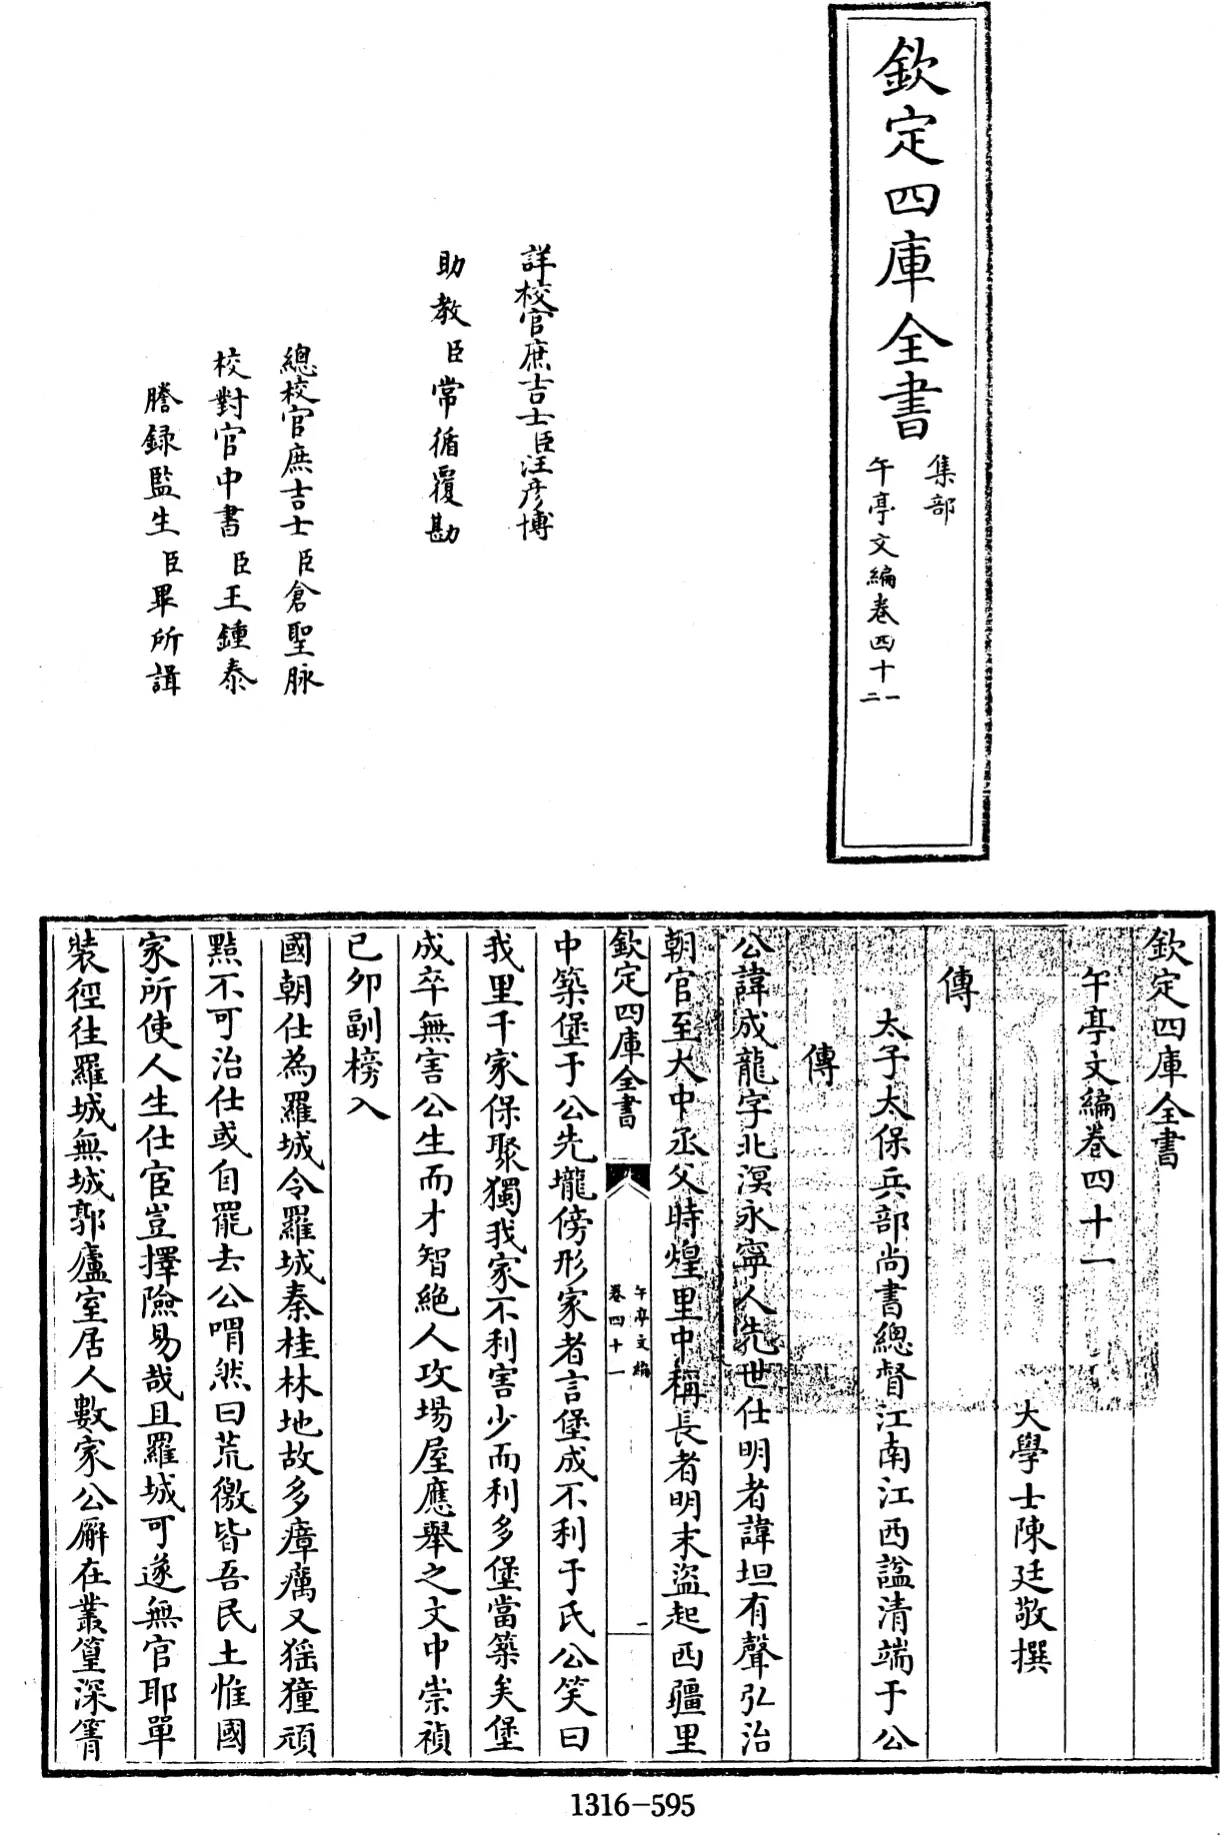 欽定四庫全書
集部
午亭文編卷四十一
二
詳校官庶吉士臣汪彦博
助教臣常循覆勘
總校官庶吉士臣倉聖脉
校對官中書臣王鍾泰
謄録監生臣畢所諿
欽定四庫全書
午亭文編卷四十一
大學士陳廷敬撰
傳
太子太保兵部尚書總督江南江西諡清端于公
傳
公諱成龍字北溟永寧人先世仕明者諱坦有聲弘治
朝官至大中丞父時煌里中稱長者明末盜起西疆里
欽定四庫全書
午亭文編
卷四十一
一
中築堡于公先壠傍形家者言堡成不利于氏公笑曰
我里千家保聚獨我家不利害少而利多堡當築矣堡
成卒無害公生而才智絶人攻場屋應舉之文中崇禎
己卯副榜入
國朝仕為羅城令羅城秦桂林地故多瘴癘又猺獞頑
黠不可治仕或自罷去公喟然曰荒徼皆吾民土惟國
家所使人生仕宦豈擇險易哉且羅城可遂無官耶單
裝徑往羅城無城郭廬室居人數家公廨在叢篁深箐
1316-595